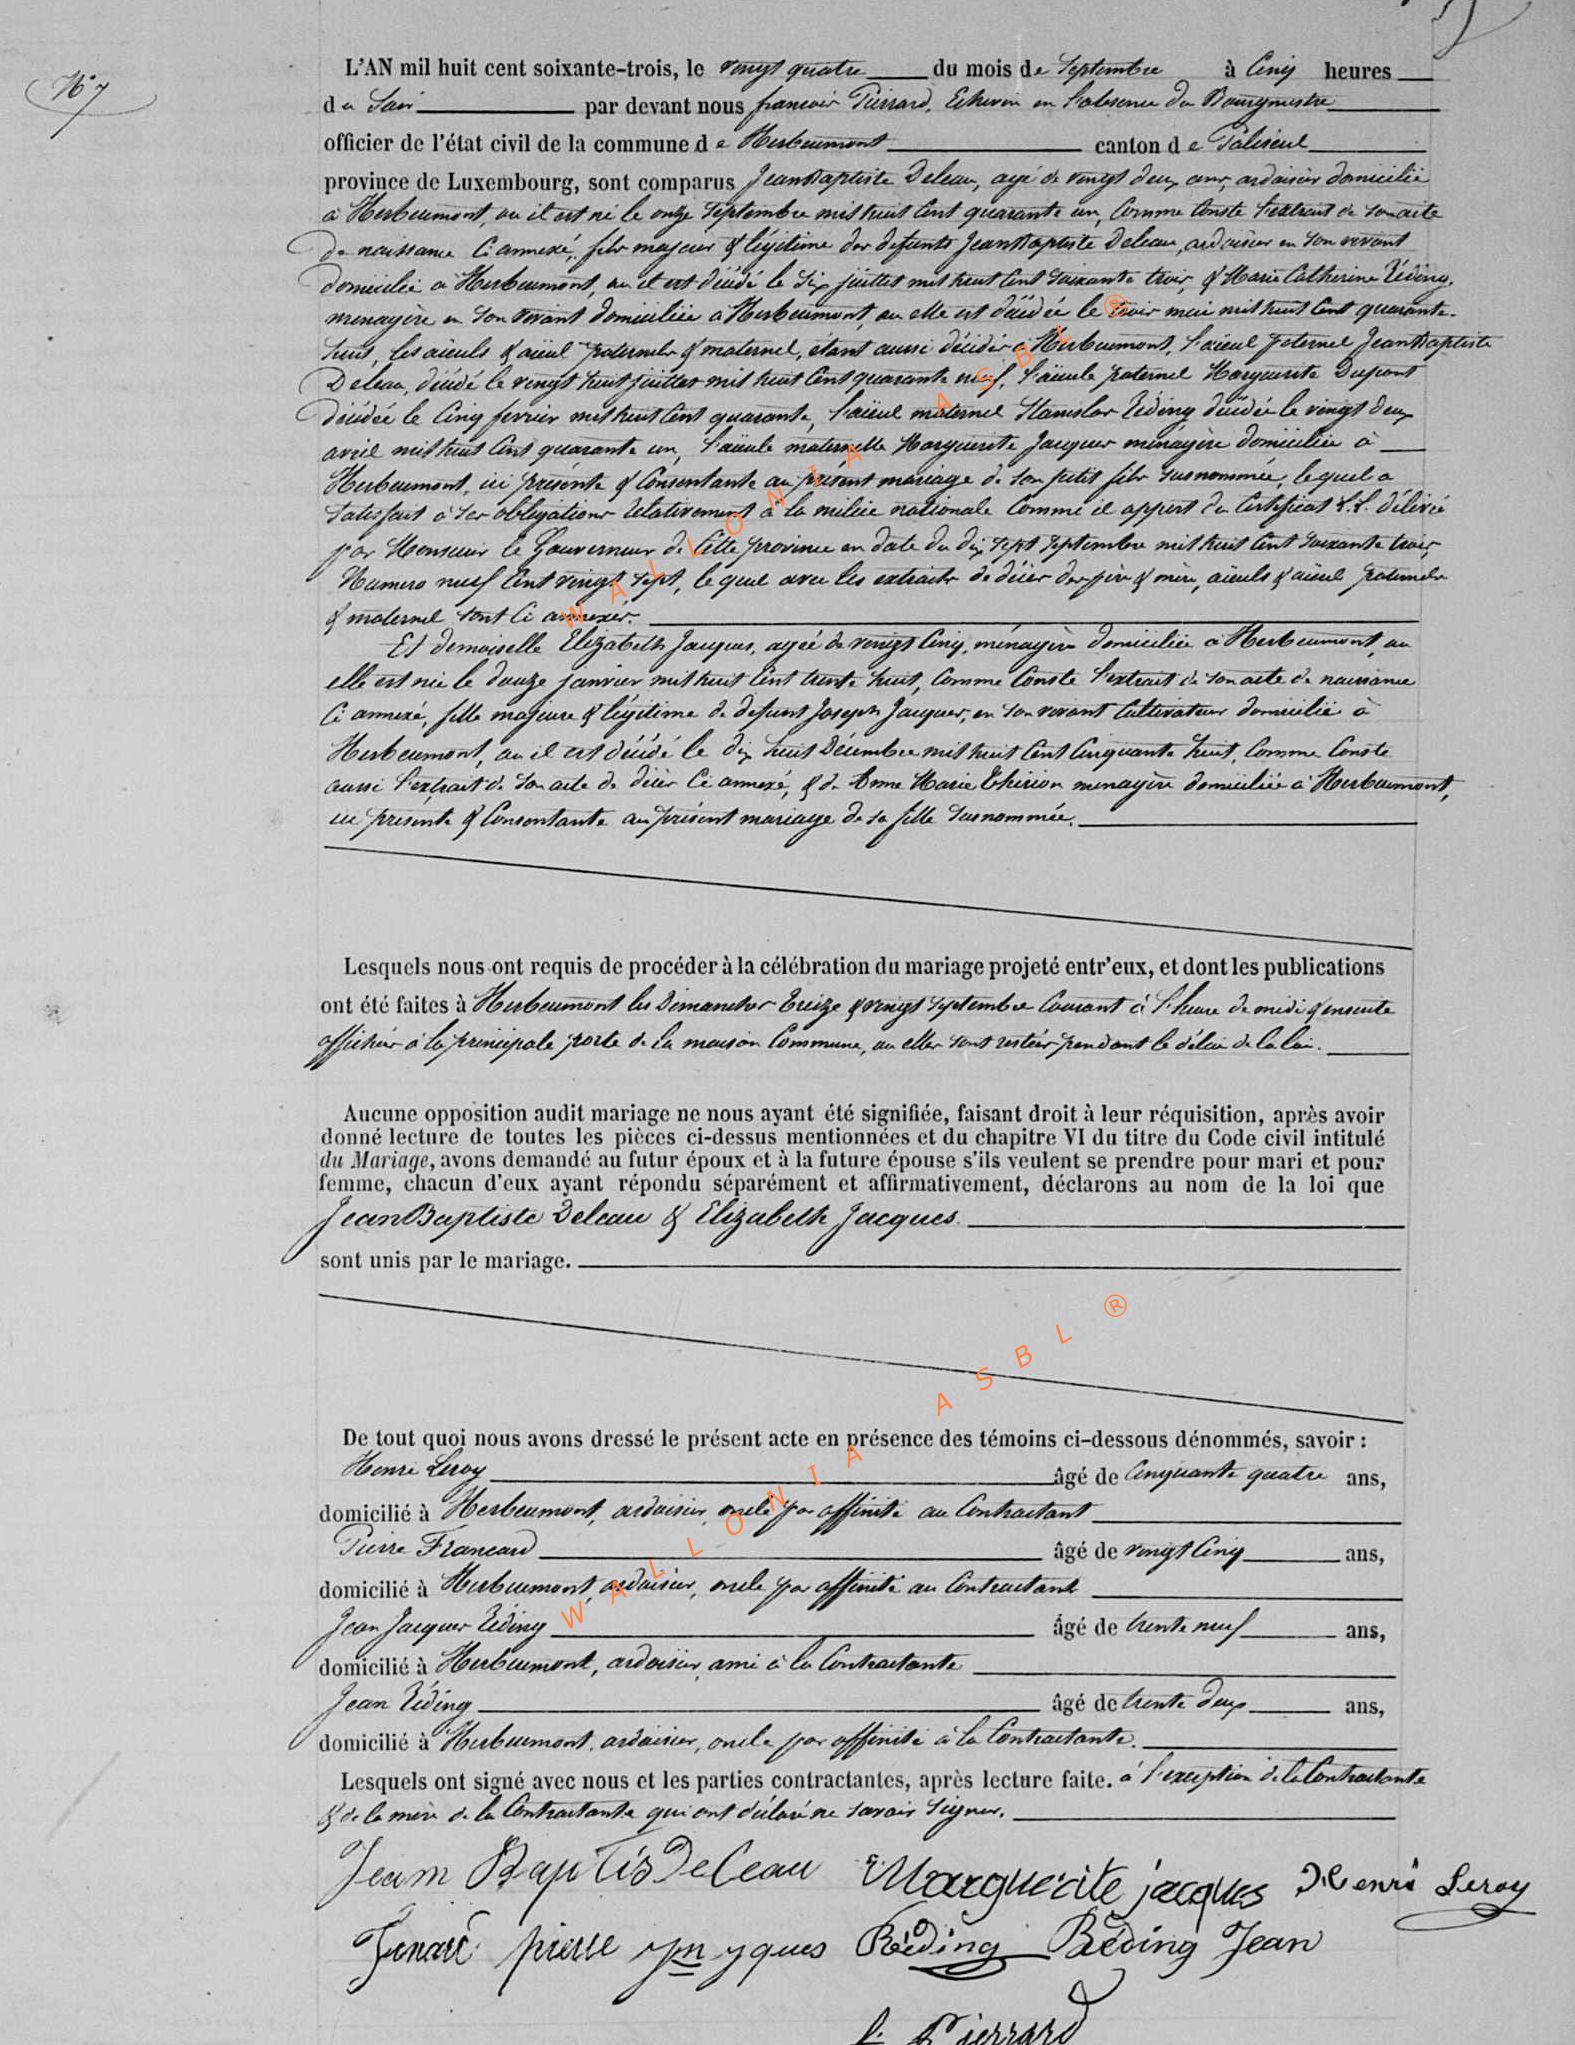 N° 7
L'AN mil huit cent soixante-trois, le vingt quatre du mois de Septembre à Cinq heures
du Soir par devant nous françois Pierrard, Echevin en l'absence du Bourgmestre
officier de l'état civil de la commune de Herbeumont canton de Paliseul
province de Luxembourg, sont comparus Jean Baptiste Deleau, agé de vingt deux ans, ardoisier domicilié
à Herbeumont, où il est né le onze Septembre mil huit Cent quarante un, Comme Conste l'extrait de son acte
de naissance Ci annexé, fils majeur & légitime des defunts Jean Baptiste Deleau, ardoisier en son vivant
domicilié à Herbeumont, où il est décédé le Six juillet mil huit Cent Soixante trois, & Marie Catherine Réding,
menagère en son vivant domiciliée à Herbeumont, où elle est décédée le trois mai mil huit Cent quarante
huit, les aïeuls & aïeul paternels & maternel, étant aussi décédés à Herbeumont, l'aïeul paternel Jean Baptiste
Deleau, décédé le vingt huit juillet mil huit Cent quarante neuf, l'aïeule paternel Marguerite Dupont
décédée le Cinq fevrier mil huit Cent quarante, l'aïeul maternel Stanislas Réding décédé le vingt deux
avril mil huit Cent quarante un, l'aïeule maternelle Marguerite Jacques ménagère domiciliée à
Herbeumont, ici présente & Consentante au présent mariage de son petit fils susnommé, lequel a
Satisfait à ses obligations relativement à la milice nationale Comme il appert du Certificat L.L. délivré
par Monsieur le Gouverneur de Cette province en date du dix sept Septembre mil huit Cent soixante trois
Numero neuf Cent vingt Sept, lequel avec les extraits de décès des père & mère, aïeuls & aïeul paternels
& maternel sont Ci annexés.
Et demoiselle Elizabeth Jacques, agée de vingt Cinq, ménagère domiciliée à Herbeumont, où
elle est née le douze janvier mil huit Cent trente huit, Comme Conste l'extrait de son acte de naissance
Ci annexé, fille majeure & légitime de defunt Joseph Jacques, en son vivant Cultivateur domicilié à
Herbeumont, où il est décédé le dix huit Décembre mil huit Cent Cinquante huit, Comme Conste
aussi l'extrait de son acte de décès Ci annexé, & de Anne Marie Thirion menagère domiciliée à Herbeumont,
ici présente & Consentante au présent mariage de sa fille susnommée.
Lesquels nous ont requis de procéder à la célébration du mariage projeté entr'eux, et dont les publications
ont été faites à Herbeumont les Dimanches treize & vingt Septembre Courant à l'heure de midi & ensuite
affichées à la principale porte de la maison Commune, où elles sont restées pendant le délai de la loi.
Aucune opposition audit mariage ne nous ayant été signifiée, faisant droit à leur réquisition, après avoir
donné lecture de toutes les pièces ci-dessus mentionnées et du chapitre VI du titre du Code civil intitulé
du Mariage, avons demandé au futur époux et à la future épouse s'ils veulent se prendre pour mari et pour
femme, chacun d'eux ayant répondu séparément et affirmativement, déclarons au nom de la loi que
Jean Baptiste Deleau & Elizabeth Jacques
sont unis par le mariage.
De tout quoi nous avons dressé le présent acte en présence des témoins ci-dessous dénommés, savoir :
Henri Leroy âgé de Cinquante quatre ans,
domicilié à Herbeumont, ardoisier, oncle par affinité au Contractant
Pierre Francard âgé de vingt Cinq ans,
domicilié à Herbeumont, ardoisier, oncle par affinité au Contractant
Jean Jacques Réding âgé de trente neuf ans,
domicilié à Herbeumont, ardoisier, ami à la Contractante
Jean Réding âgé de trente deux ans,
domicilié à Herbeumont, ardoisier, oncle par affinité à la Contractante.
Lesquels ont signé avec nous et les parties contractantes, après lecture faite. à l'exception de la Contractante
& de la mère de la Contractante qui ont déclaré ne savoir signer.
Jean Baptis DeLeau Marguerite jacques Henri Leroy
pierre Réding Réding Jean
f. Pierrard
WALLONIA ASBL ®
WALLONIA ASBL ®